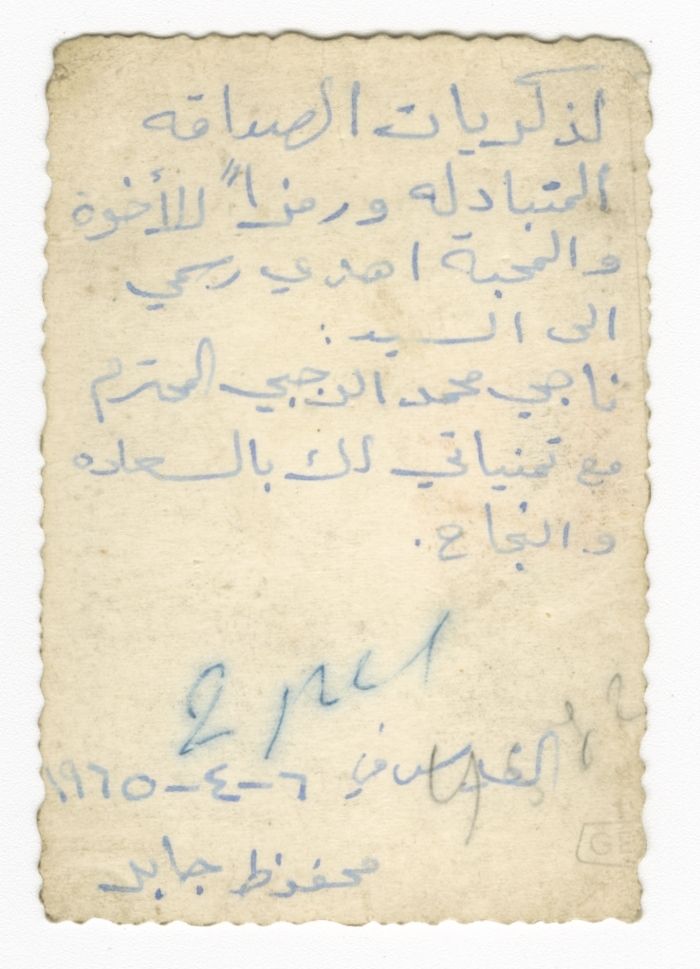 لذكريات الصداقه
المتبادله ورمزاً للأخوة
والمحبة اهدي رسمي
الى السيد :
ناجي محمد الرجبي المحترم
مع تمنياتي لك بالسعاده
والنجاح .
القدس في ٦-٤-١٩٦٥
محفوظ جابر